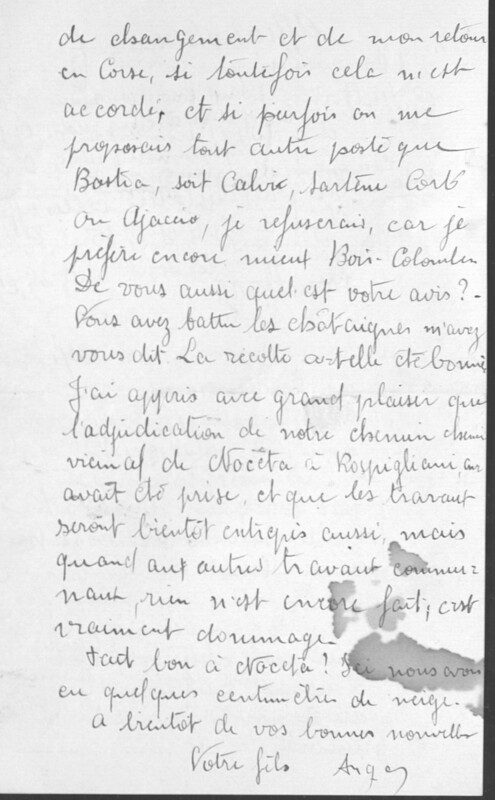 de changement et de mon retour
en Corse, si toutefois cela m'est
accordé, et si parfois on me
proposais tout autre poste que
Bastia, soit Calvi, Sartène Corte
ou Ajaccio, je refuserais, car je
préfère encore mieux Bois-Colombes
De vous aussi quel est votre avis?-
Vous avez battu les châtaignes m'avez
vous dit. La récolte a-t-elle été bonne
J'ai appris avec grand plaisir que
l'adjudication de notre chemin
vicinal de Nocéta à Rospigliani,
avait été prise, et que les travaux
seront bientôt entrepris aussi, mais
quand aux autres travaux commu-
naux, rien n'est encore fait; c'est
vraiment dommage
Fait bon à Nocéta? Ici nous avons
eu quelques centimètres de neige.
A bientôt de vos bonnes nouvelles
Votre fils Ange